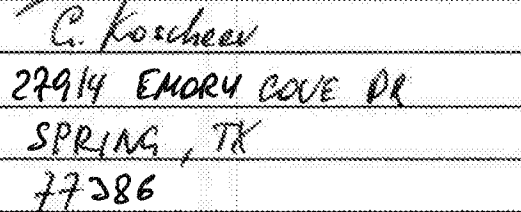 G. Koscheev
27914 EMORY COVE DR
SPRING, TX
77386